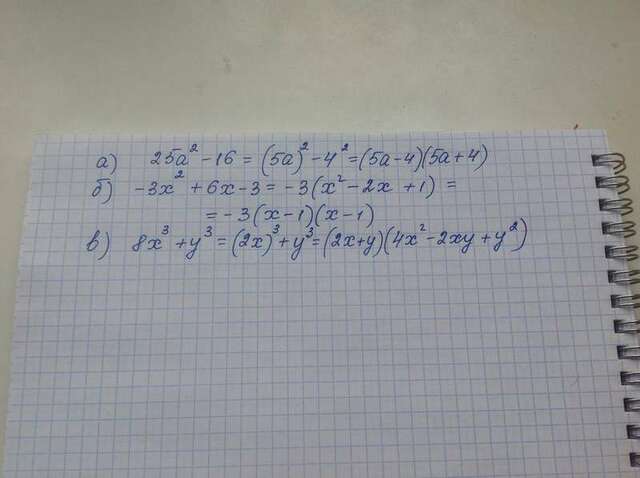 а) 25a² - 16 = (5a)² - 4² = (5a - 4)(5a + 4)
б) -3x² + 6x - 3 = -3(x² - 2x + 1) =
= -3(x - 1)(x - 1)
в) 8x³ + y³ = (2x)³ + y³ = (2x + y)(4x² - 2xy + y²)